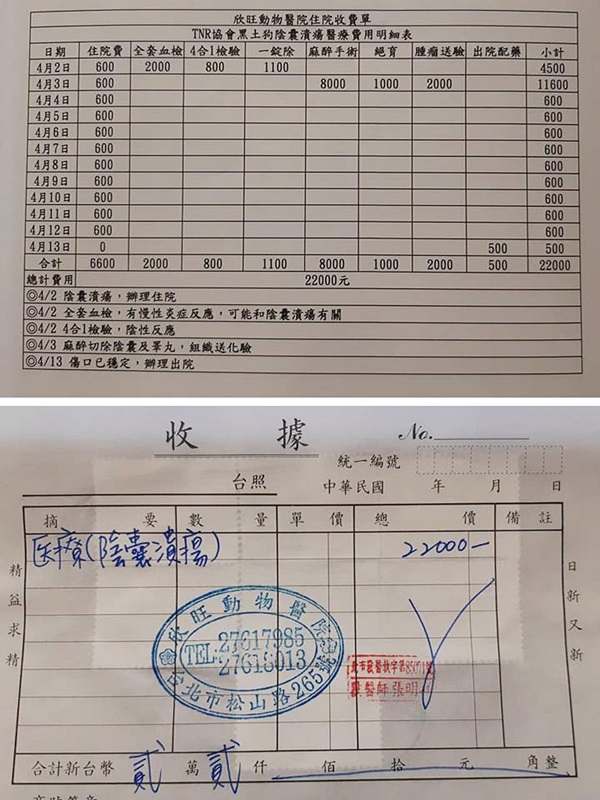 欣旺動物醫院住院收費單
TNR協會黑土狗陰囊潰瘍醫療費用明細表
日期 住院費 全套血檢 4合1檢驗 一錠除 麻醉手術 絕育 腫瘤送驗 出院配藥 小計
4月2日 600 2000 800 1100 4500
4月3日 600 8000 1000 2000 11600
4月4日 600 600
4月5日 600 600
4月6日 600 600
4月7日 600 600
4月8日 600 600
4月9日 600 600
4月10日 600 600
4月11日 600 600
4月12日 600 600
4月13日 0 500 500
合計 6600 2000 800 1100 8000 1000 2000 500 22000
總計費用 22000元
◎4/2 陰囊潰瘍，辦理住院
◎4/2 全套血檢，有慢性炎症反應，可能和陰囊潰瘍有關
◎4/2 4合1檢驗，陰性反應
◎4/3 麻醉切除陰囊及睪丸，組織送化驗
◎4/13 傷口已穩定，辦理出院
收據 No.
統一編號
台照 中華民國 年 月 日
摘要 數量 單價 總價 備註
医療(陰囊潰瘍) 22000-
精益求精
日新又新
欣旺動物醫院
TEL: 27617985
27618013
台北市松山路265號
獸醫師張明
合計新台幣 貳 萬 貳 仟 佰 拾 元 角整